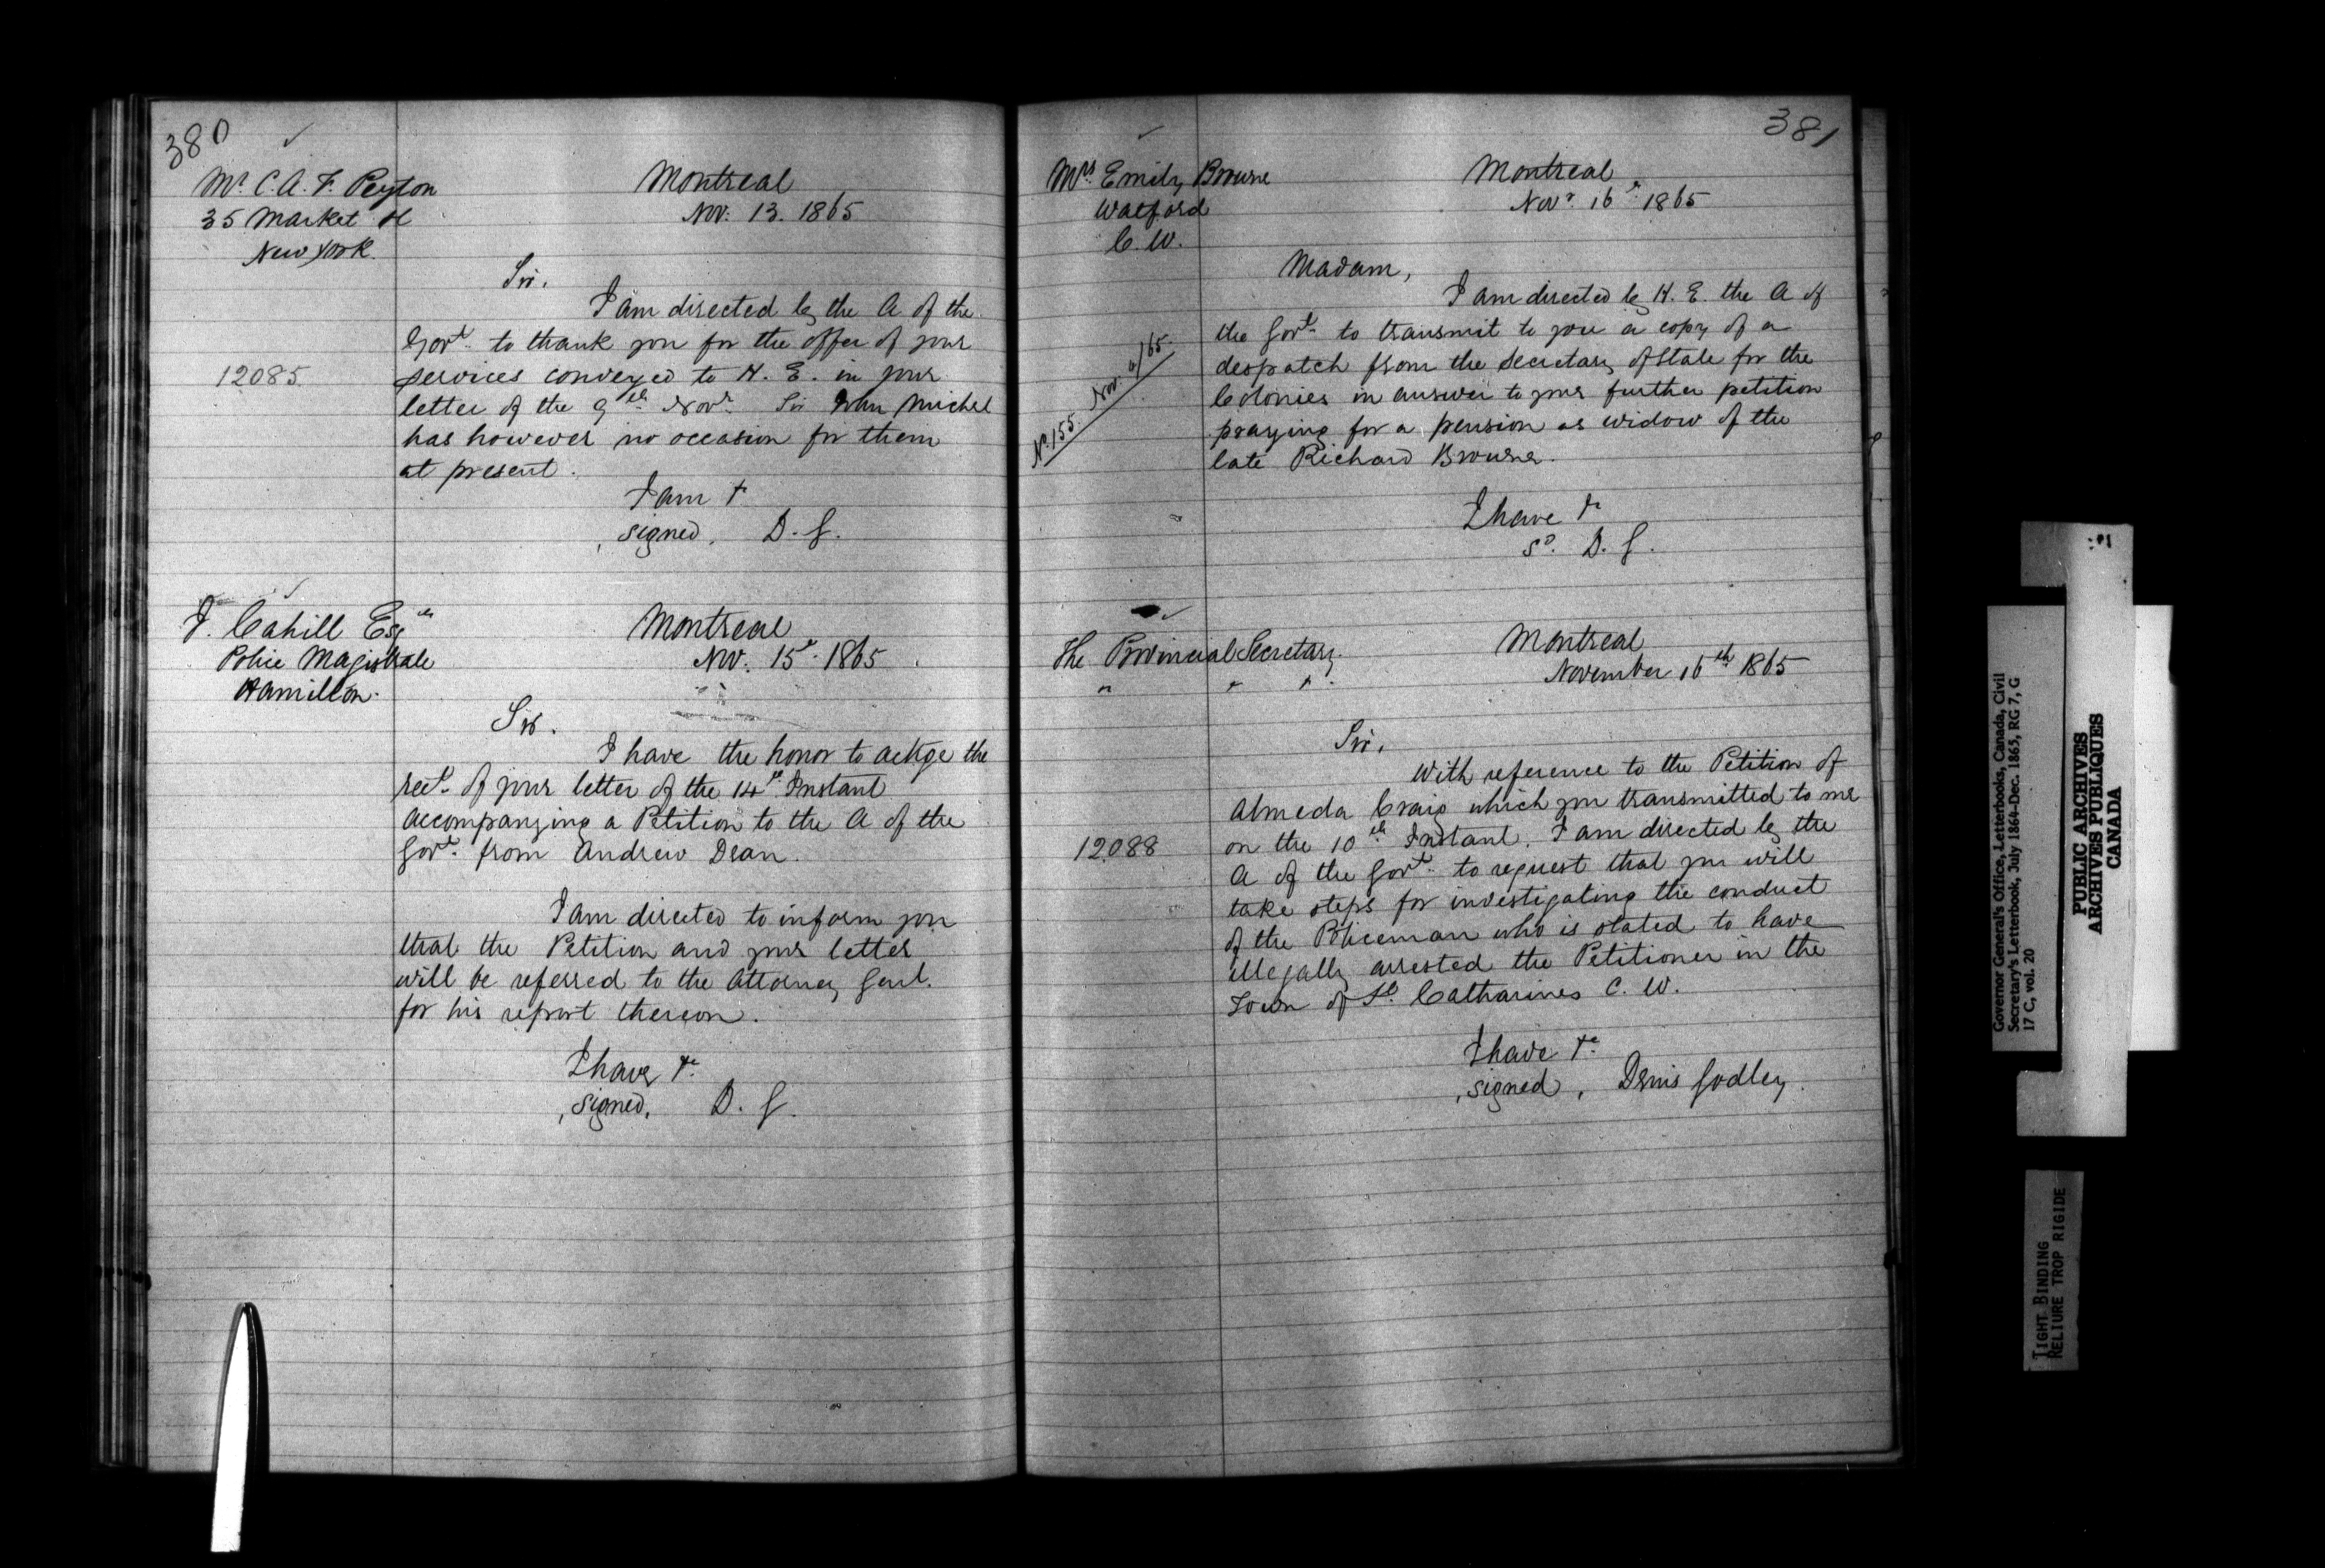 380
Mr. C. A. F. Peyton
35 Market St
New York.
Montreal
Nov: 13. 1865
Sir.
I am directed by the A of the
Govt. to thank you for the offer of your
12085
services conveyed to H. E. in your
letter of the 9th Novr. Sir John Michel
has however no occasion for them
at present.
I am &
signed, D. G.
J. Cahill Esqre
Police Magistrate
Hamilton.
Montreal
Nov: 15th. 1865
Sir.
I have the honor to ackge the
rect. of your letter of the 14th Instant
accompanying a Petition to the A of the
Govt. from Andrew Dean.
I am directed to inform you
that the Petition and your letter
will be referred to the Attorney Genl.
for his report thereon.
I have &c.
signed, D. G.
381
Mrs. Emily Browne
Watford
C. W.
Montreal
Novr. 16th 1865
Madam,
I am directed by H. E. the A of
the Govt. to transmit to you a copy of a
despatch from the Secretary of State for the
Colonies in answer to your further petition
praying for a pension as widow of the
late Richard Browne.
No. 155. Nov. /65.
I have &c
Sd. D. G.
The Provincial Secretary.
" " "
Montreal
November 16th 1865
Sir,
With reference to the Petition of
Almeda Craig which you transmitted to me
12088
on the 10th Instant. I am directed by the
A of the Govt. to request that you will
take steps for investigating the conduct
of the Policeman who is stated to have
illegally arrested the Petitioner in the
Town of St. Catharines C. W.
I have &c.
signed, Denis Godley.
Governor General's Office, Letterbooks, Canada, Civil
Secretary's Letterbook, July 1864-Dec. 1865, RG 7, G
17 C, vol. 20
PUBLIC ARCHIVES
ARCHIVES PUBLIQUES
CANADA
TIGHT BINDING
RELIURE TROP RIGIDE